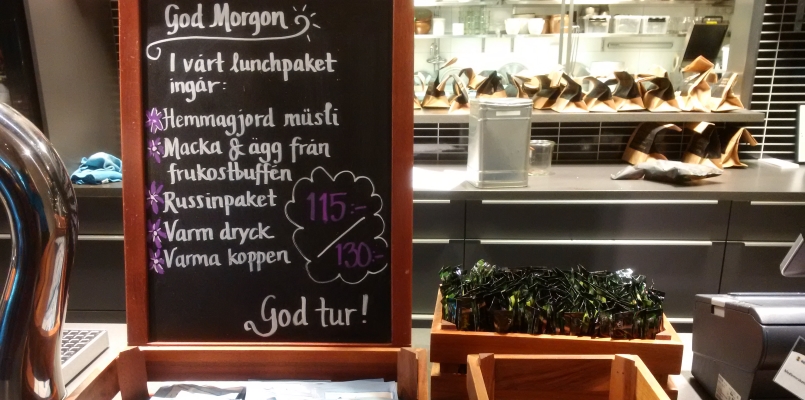 God Morgon
I vårt lunchpaket
ingår:
Hemmagjord müsli
Macka & ägg från
frukostbuffén
Russinpaket
Varm dryck
Varma koppen
115:-
130:-
God tur!